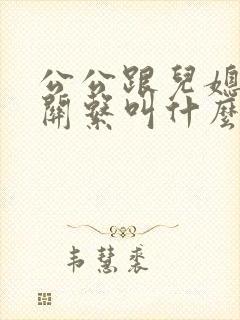 公公跟兒媳
關繫叫什麼
韦慧裘